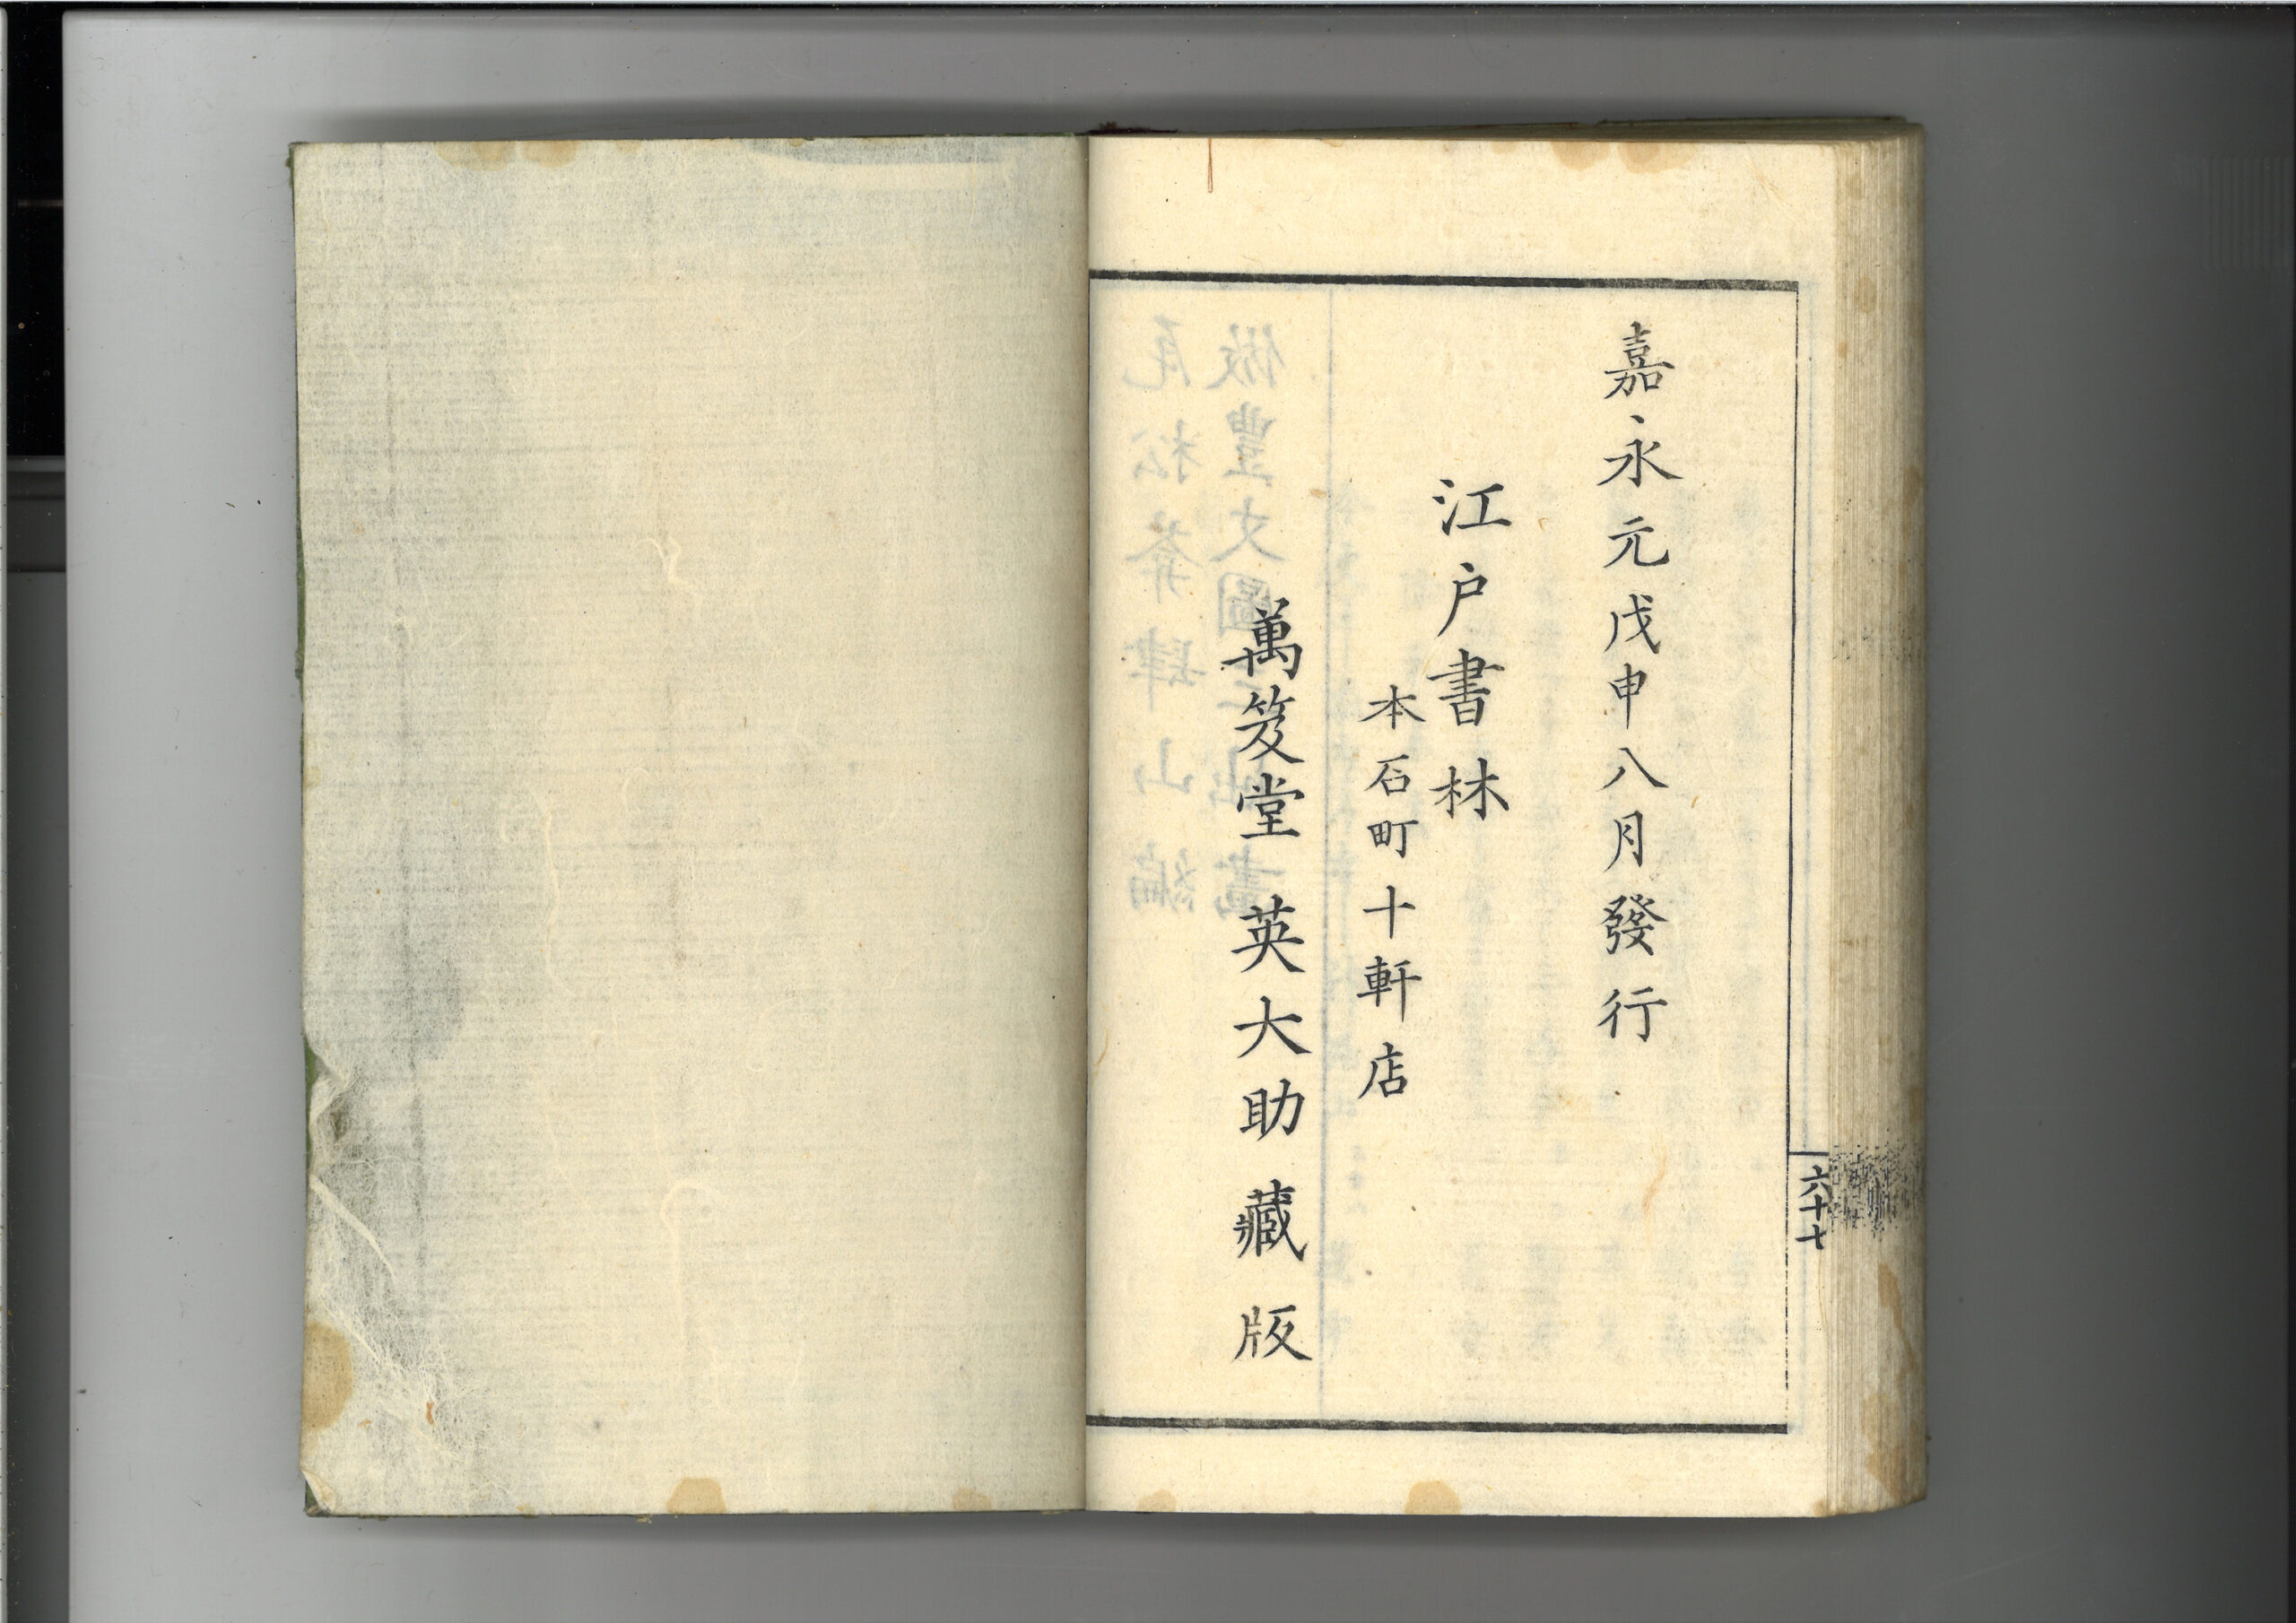 嘉永元戊申八月發行
江戸書林
本石町十軒店
萬笈堂 英大助藏版
六十七